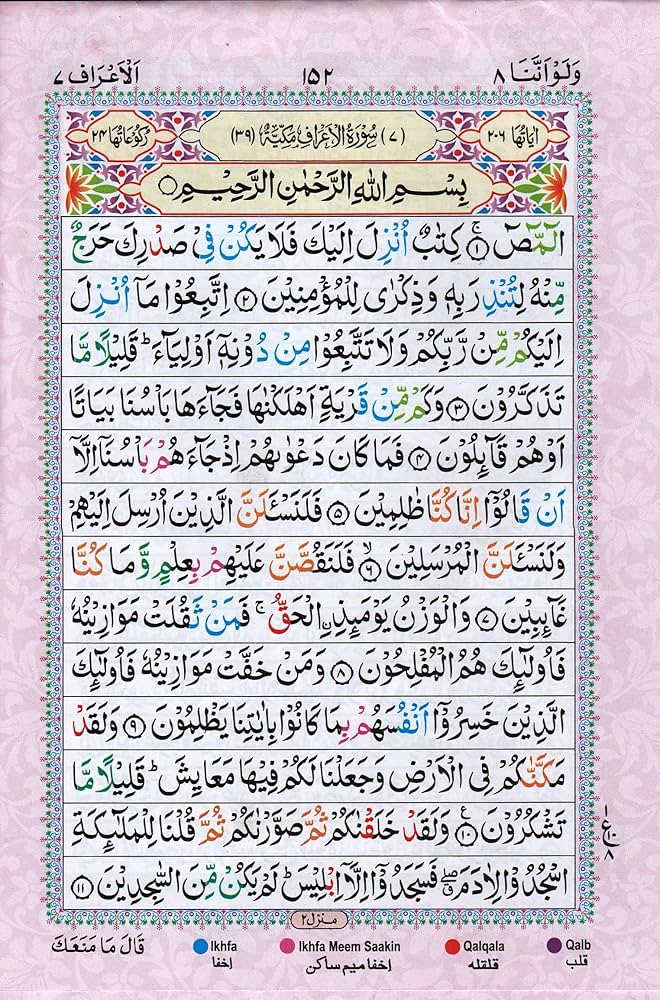 وَلَوْ اَنَّنَا ٨
١٥٢
اَلْاَعْرَاف ٧
اٰيَاتُهَا ٢٠٦
(٧) سُوْرَةُ الْاَعْرَافِ مَكِّيَّةٌ (٣٩)
رُكُوْعَاتُهَا ٢٤
بِسْمِ اللّٰهِ الرَّحْمٰنِ الرَّحِيْمِ○
الٓمّٓصٓ ۚ﴿١﴾ كِتٰبٌ اُنْزِلَ اِلَيْكَ فَلَا يَكُنْ فِيْ صَدْرِكَ حَرَجٌ
مِّنْهُ لِتُنْذِرَ بِهٖ وَذِكْرٰى لِلْمُؤْمِنِيْنَ ﴿٢﴾ اِتَّبِعُوْا مَاۤ اُنْزِلَ
اِلَيْكُمْ مِّنْ رَّبِّكُمْ وَلَا تَتَّبِعُوْا مِنْ دُوْنِهٖۤ اَوْلِيَآءَ ؕ قَلِيْلًا مَّا
تَذَكَّرُوْنَ ﴿٣﴾ وَكَمْ مِّنْ قَرْيَةٍ اَهْلَكْنٰهَا فَجَآءَهَا بَاْسُنَا بَيَاتًا
اَوْ هُمْ قَآئِلُوْنَ ﴿٤﴾ فَمَا كَانَ دَعْوٰىهُمْ اِذْ جَآءَهُمْ بَاْسُنَاۤ اِلَّاۤ
اَنْ قَالُوْۤا اِنَّا كُنَّا ظٰلِمِيْنَ ﴿٥﴾ فَلَنَسْـَٔلَنَّ الَّذِيْنَ اُرْسِلَ اِلَيْهِمْ
وَلَنَسْـَٔلَنَّ الْمُرْسَلِيْنَ ۙ﴿٦﴾ فَلَنَقُصَّنَّ عَلَيْهِمْ بِعِلْمٍ وَّمَا كُنَّا
غَآئِبِيْنَ ﴿٧﴾ وَالْوَزْنُ يَوْمَئِذِ ِۨالْحَقُّ ۚ فَمَنْ ثَقُلَتْ مَوَازِيْنُهٗ
فَاُولٰٓئِكَ هُمُ الْمُفْلِحُوْنَ ﴿٨﴾ وَمَنْ خَفَّتْ مَوَازِيْنُهٗ فَاُولٰٓئِكَ
الَّذِيْنَ خَسِرُوْۤا اَنْفُسَهُمْ بِمَا كَانُوْا بِاٰيٰتِنَا يَظْلِمُوْنَ ﴿٩﴾ وَلَقَدْ
مَكَّنّٰكُمْ فِي الْاَرْضِ وَجَعَلْنَا لَكُمْ فِيْهَا مَعَايِشَ ؕ قَلِيْلًا مَّا
تَشْكُرُوْنَ ﴿١٠﴾ ع وَلَقَدْ خَلَقْنٰكُمْ ثُمَّ صَوَّرْنٰكُمْ ثُمَّ قُلْنَا لِلْمَلٰٓئِكَةِ
اسْجُدُوْا لِاٰدَمَ ۖ فَسَجَدُوْۤا اِلَّاۤ اِبْلِيْسَ ؕ لَمْ يَكُنْ مِّنَ السّٰجِدِيْنَ ﴿١١﴾
منزل ٢
قَالَ مَا مَنَعَكَ
Ikhfa
اخفا
Ikhfa Meem Saakin
اخفا میم ساکن
Qalqala
قلقله
Qalb
قلب